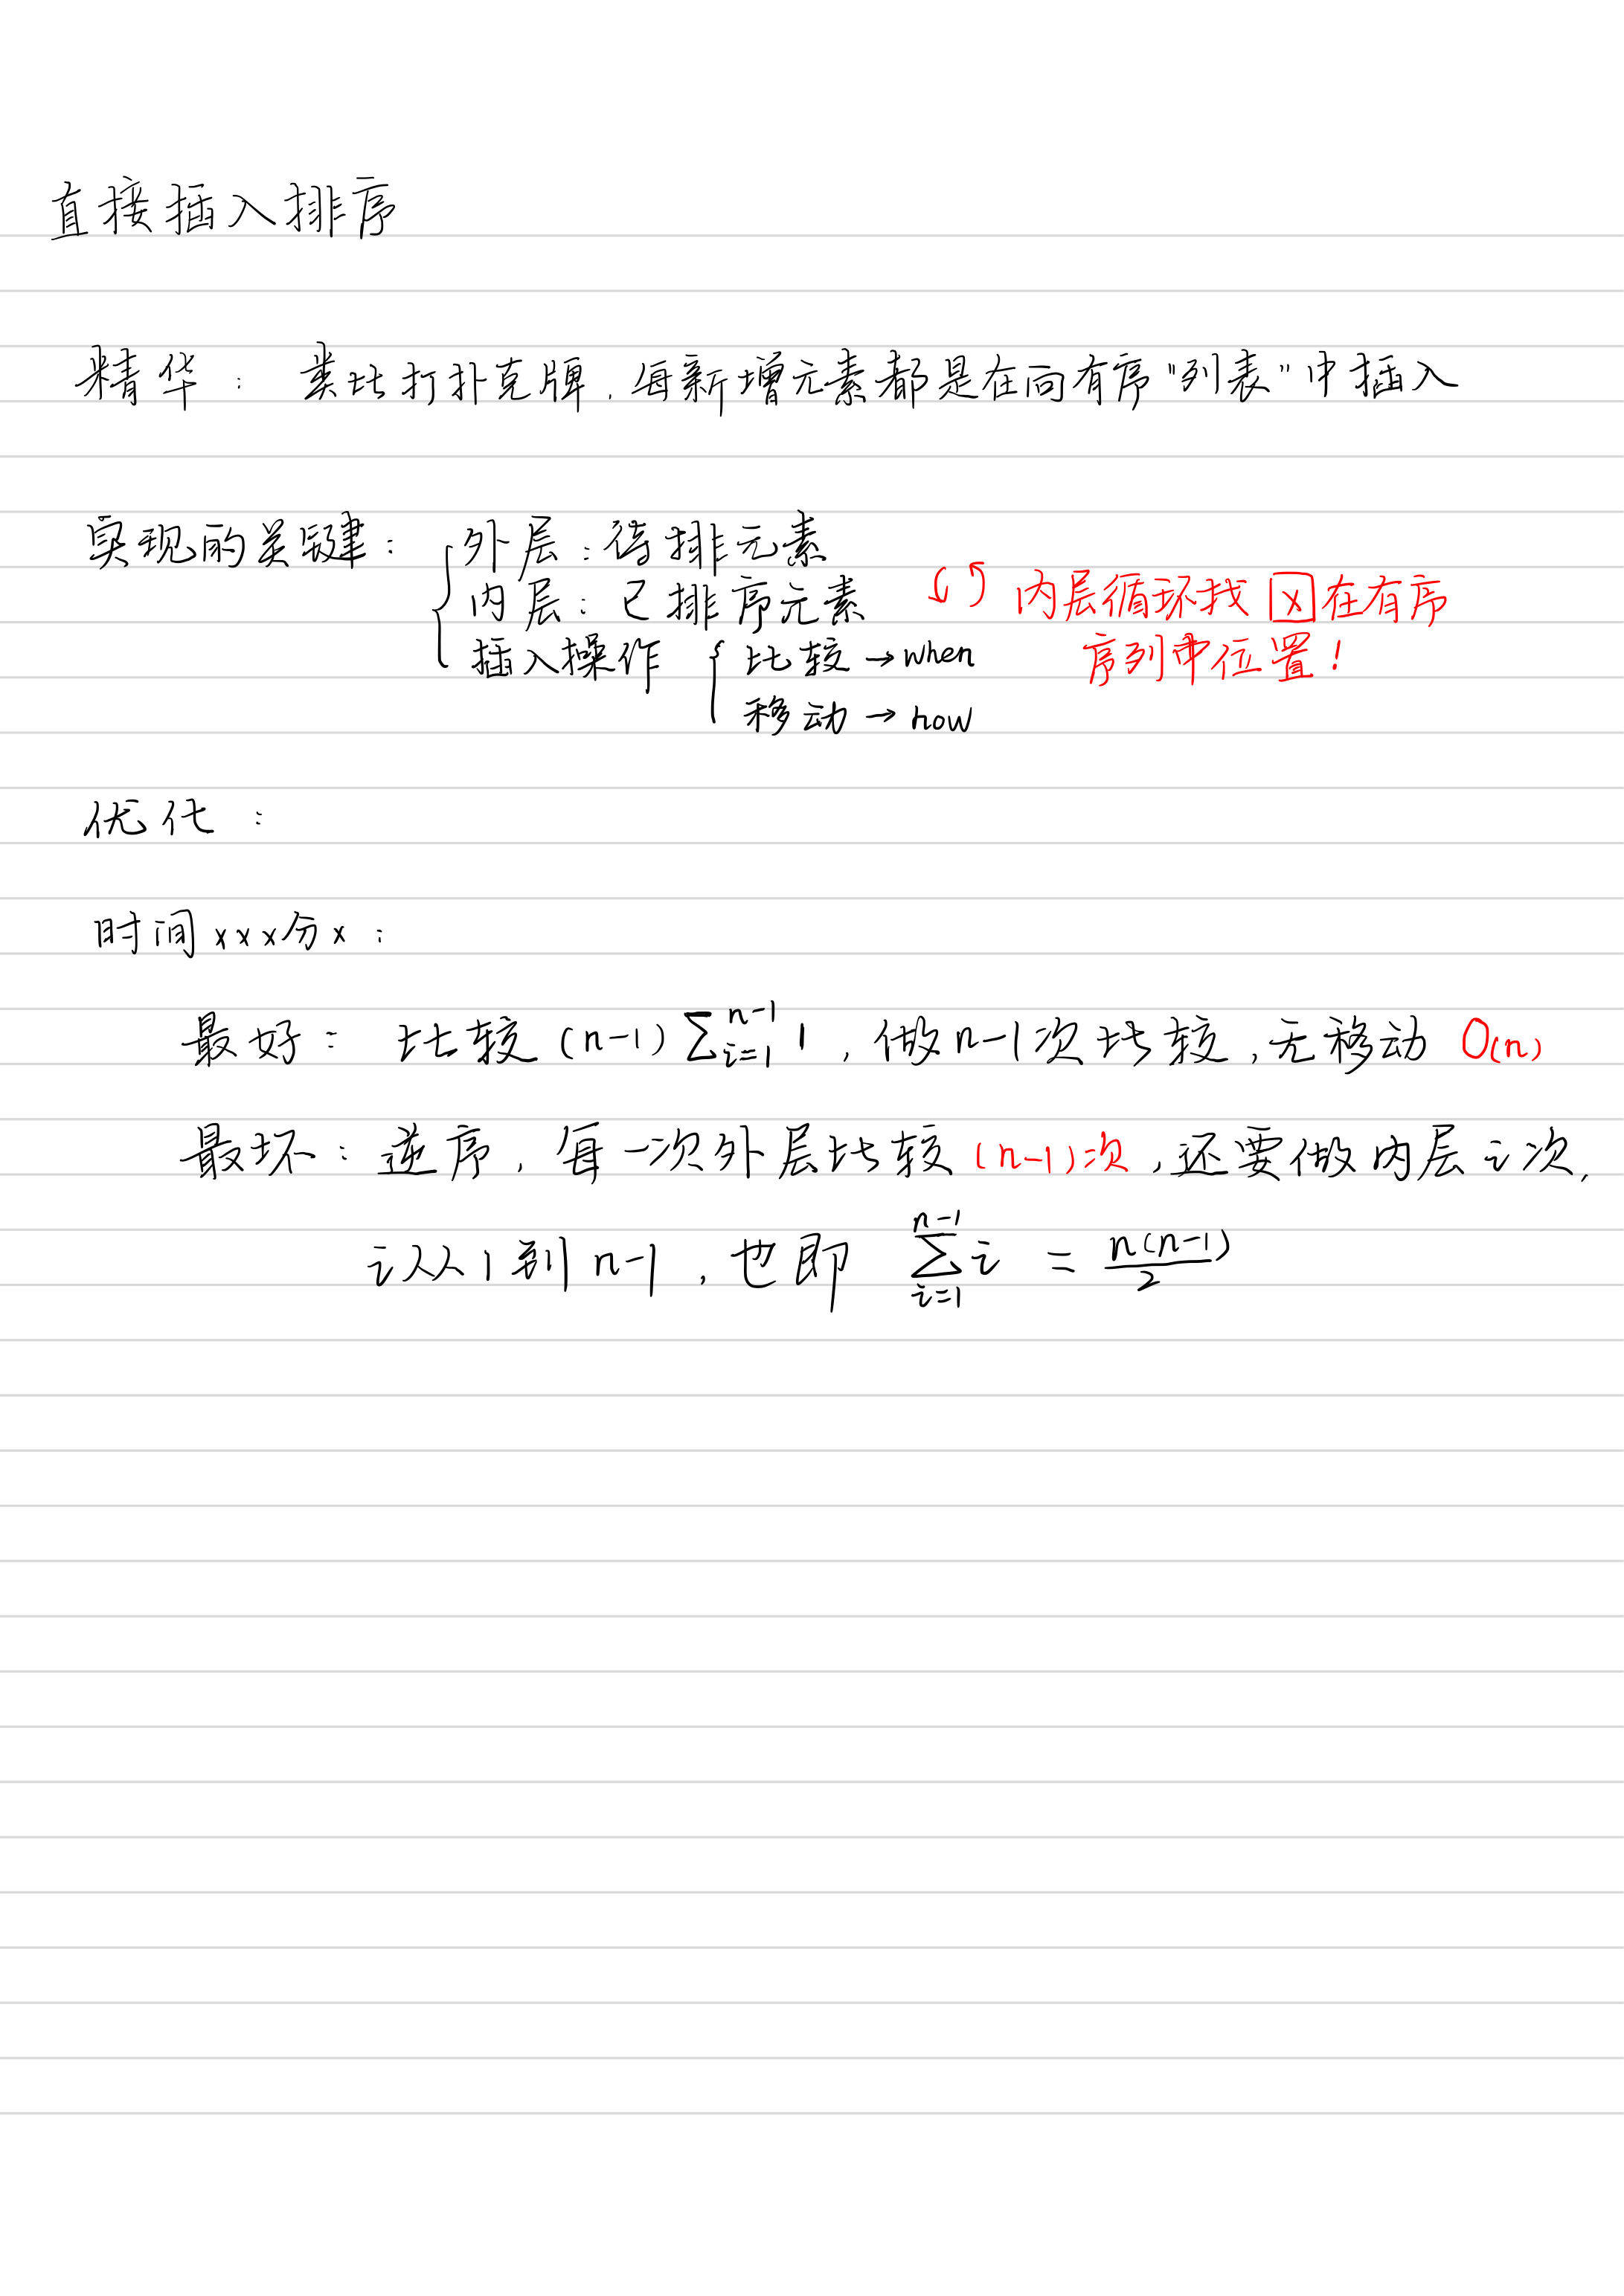 直接插入排序
精华： 类比打扑克牌，每新增元素都是在向有序"列表"中插入
实现的关键： 外层：待排元素
内层：已排序元素
内层循环找 x 在有序
插入操作 比较→when
序列中位置！
移动→how
优化：
时间xxx分x：
最好： 比较 (n-1) ∑_{i=1}^{n-1} 1，做n-1次比较，无移动 O(n)
最坏：逆序，每一次外层比较(n-1)次，还要做内层i次，
i从1到n-1，也即 ∑_{i=1}^{n-1} i = n(n-1)/2